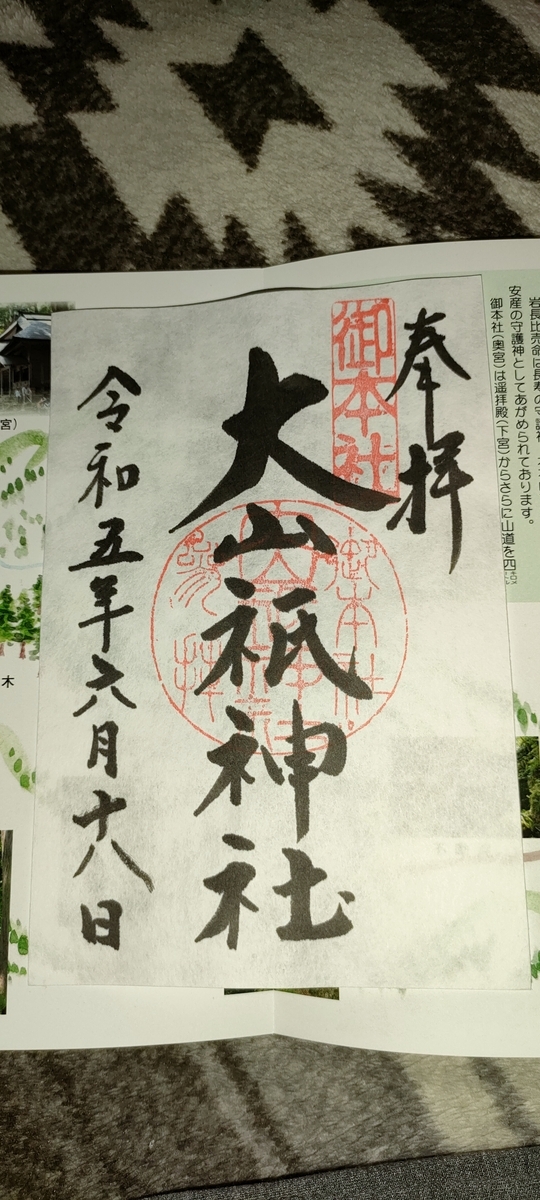 岩長比売命は長寿の守護神
安産の守護神としてあがめられております。
御本社(奥宮)は遥拝殿(下宮)からさらに山道を四キロ
奉拝
御本社
大山祇神社
令和五年六月十八日
宮)
木